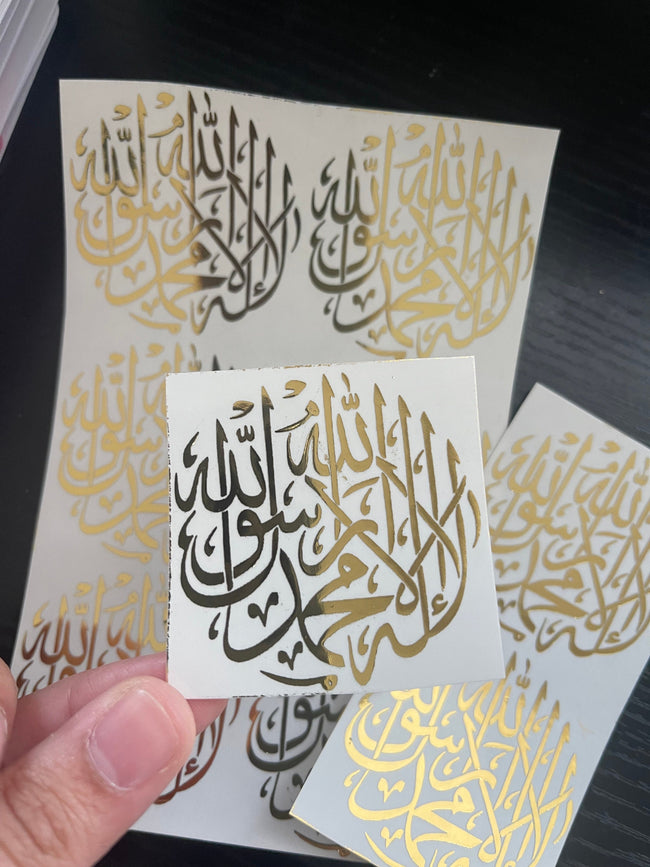 لا إله إلا الله محمد رسول الله
لا إله إلا الله محمد رسول الله
لا إله إلا الله محمد رسول الله
لا إله إلا الله محمد رسول الله
لا إله إلا الله محمد رسول الله